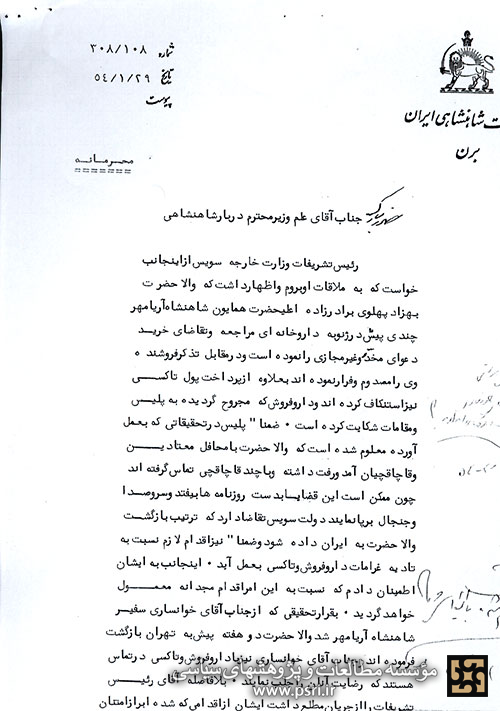 شماره ۳۰۸/۱۰۸
تاریخ ۵۴/۱/۲۹
پیوست
ت شاهنشاهی ایران
برن
محرمانه
جناب آقای علم وزیر محترم دربار شاهنشاهی
رئیس تشریفات وزارت خارجه سویس از اینجانب
خواست که به ملاقات او بروم و اظهار داشت که والاحضرت
بهزاد پهلوی برادرزاده اعلیحضرت همایون شاهنشاه آریامهر
چندی پیش در ژنو به داروخانه ای مراجعه و تقاضای خرید
دوای مخدر و غیرمجازی را نموده است و در مقابل تذکر فروشنده
وی را مصدوم و فرار نموده اند بعلاوه از پرداخت پول تاکسی
نیز استنکاف کرده اند و داروفروش که مجروح گردیده به پلیس
و مقامات شکایت کرده است ۰ ضمنا" پلیس در تحقیقاتی که بعمل
آورده معلوم شده است که والاحضرت با محافل معتادین
و قاچاقچیان آمد و رفت داشته و با چند قاچاقچی تماس گرفته اند
چون ممکن است این قضایا بدست روزنامه ها بیفتد و سر و صدا
و جنجال برپا نمایند دولت سویس تقاضا دارد که ترتیب بازگشت
والاحضرت به ایران داده شود و ضمنا" نیز اقدام لازم نسبت به
تادیه غرامات داروفروش و تاکسی بعمل آید ۰ اینجانب به ایشان
اطمینان دادم که نسبت به این امر اقدام مجدانه معمول
خواهد گردید ۰ بقرار تحقیقی که از جناب آقای خوانساری سفیر
شاهنشاه آریامهر شد والاحضرت دو هفته پیش به تهران بازگشت
فرموده اند جناب آقای خوانساری نیز با داروفروش و تاکسی در تماس
هستند که رضایت آنان را جلب نمایند ۰ بلافاصله آقای رئیس
تشریفات را از جریان مطلع داشت ایشان از اقدامی که شده ابراز امتنان
موسسه مطالعات و پژوهشهای سیاسی
www.psri.ir